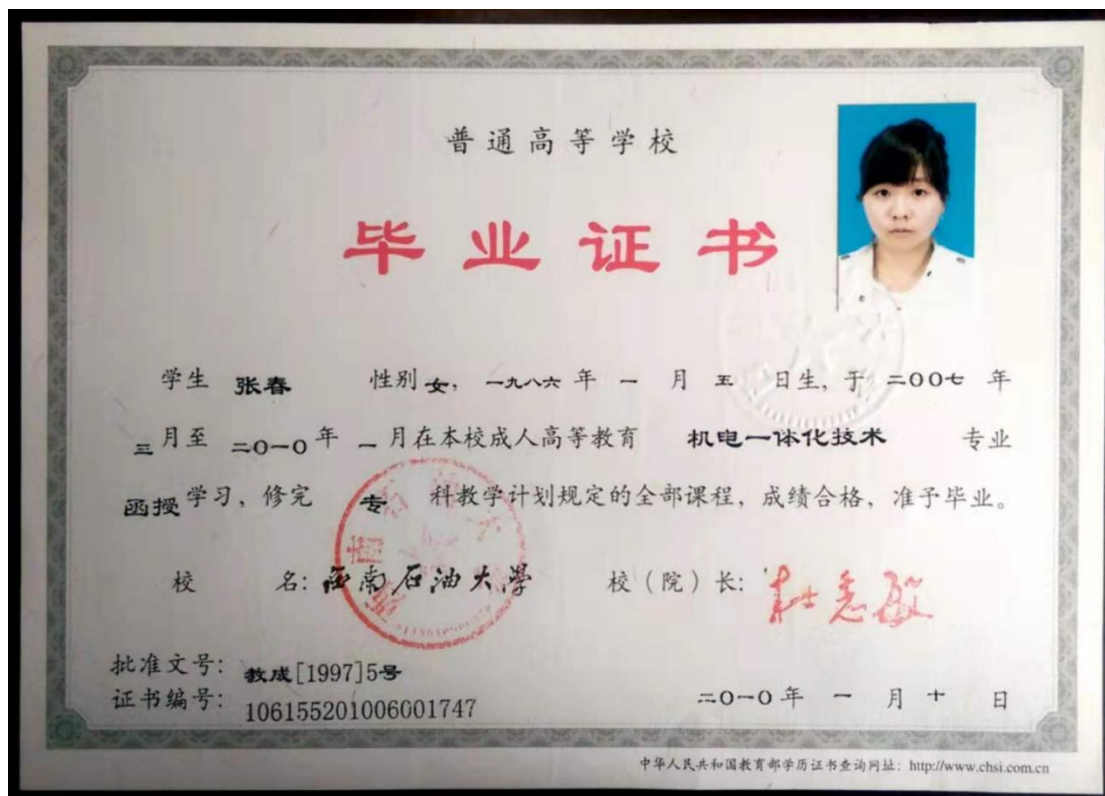 普通高等学校
毕业证书
学生 张春 性别 女, 一九八六 年 一 月 五 日生, 于 二00七 年
三 月至 二0一0 年 一 月在本校成人高等教育 机电一体化技术 专业
函授 学习, 修完 专 科教学计划规定的全部课程, 成绩合格, 准予毕业。
校 名: 西南石油大學 校(院)长: 杜志敏
批准文号: 教成[1997]5号
证书编号: 106155201006001747
二0一0 年 一 月 十 日
中华人民共和国教育部学历证书查询网址: http://www.chsi.com.cn